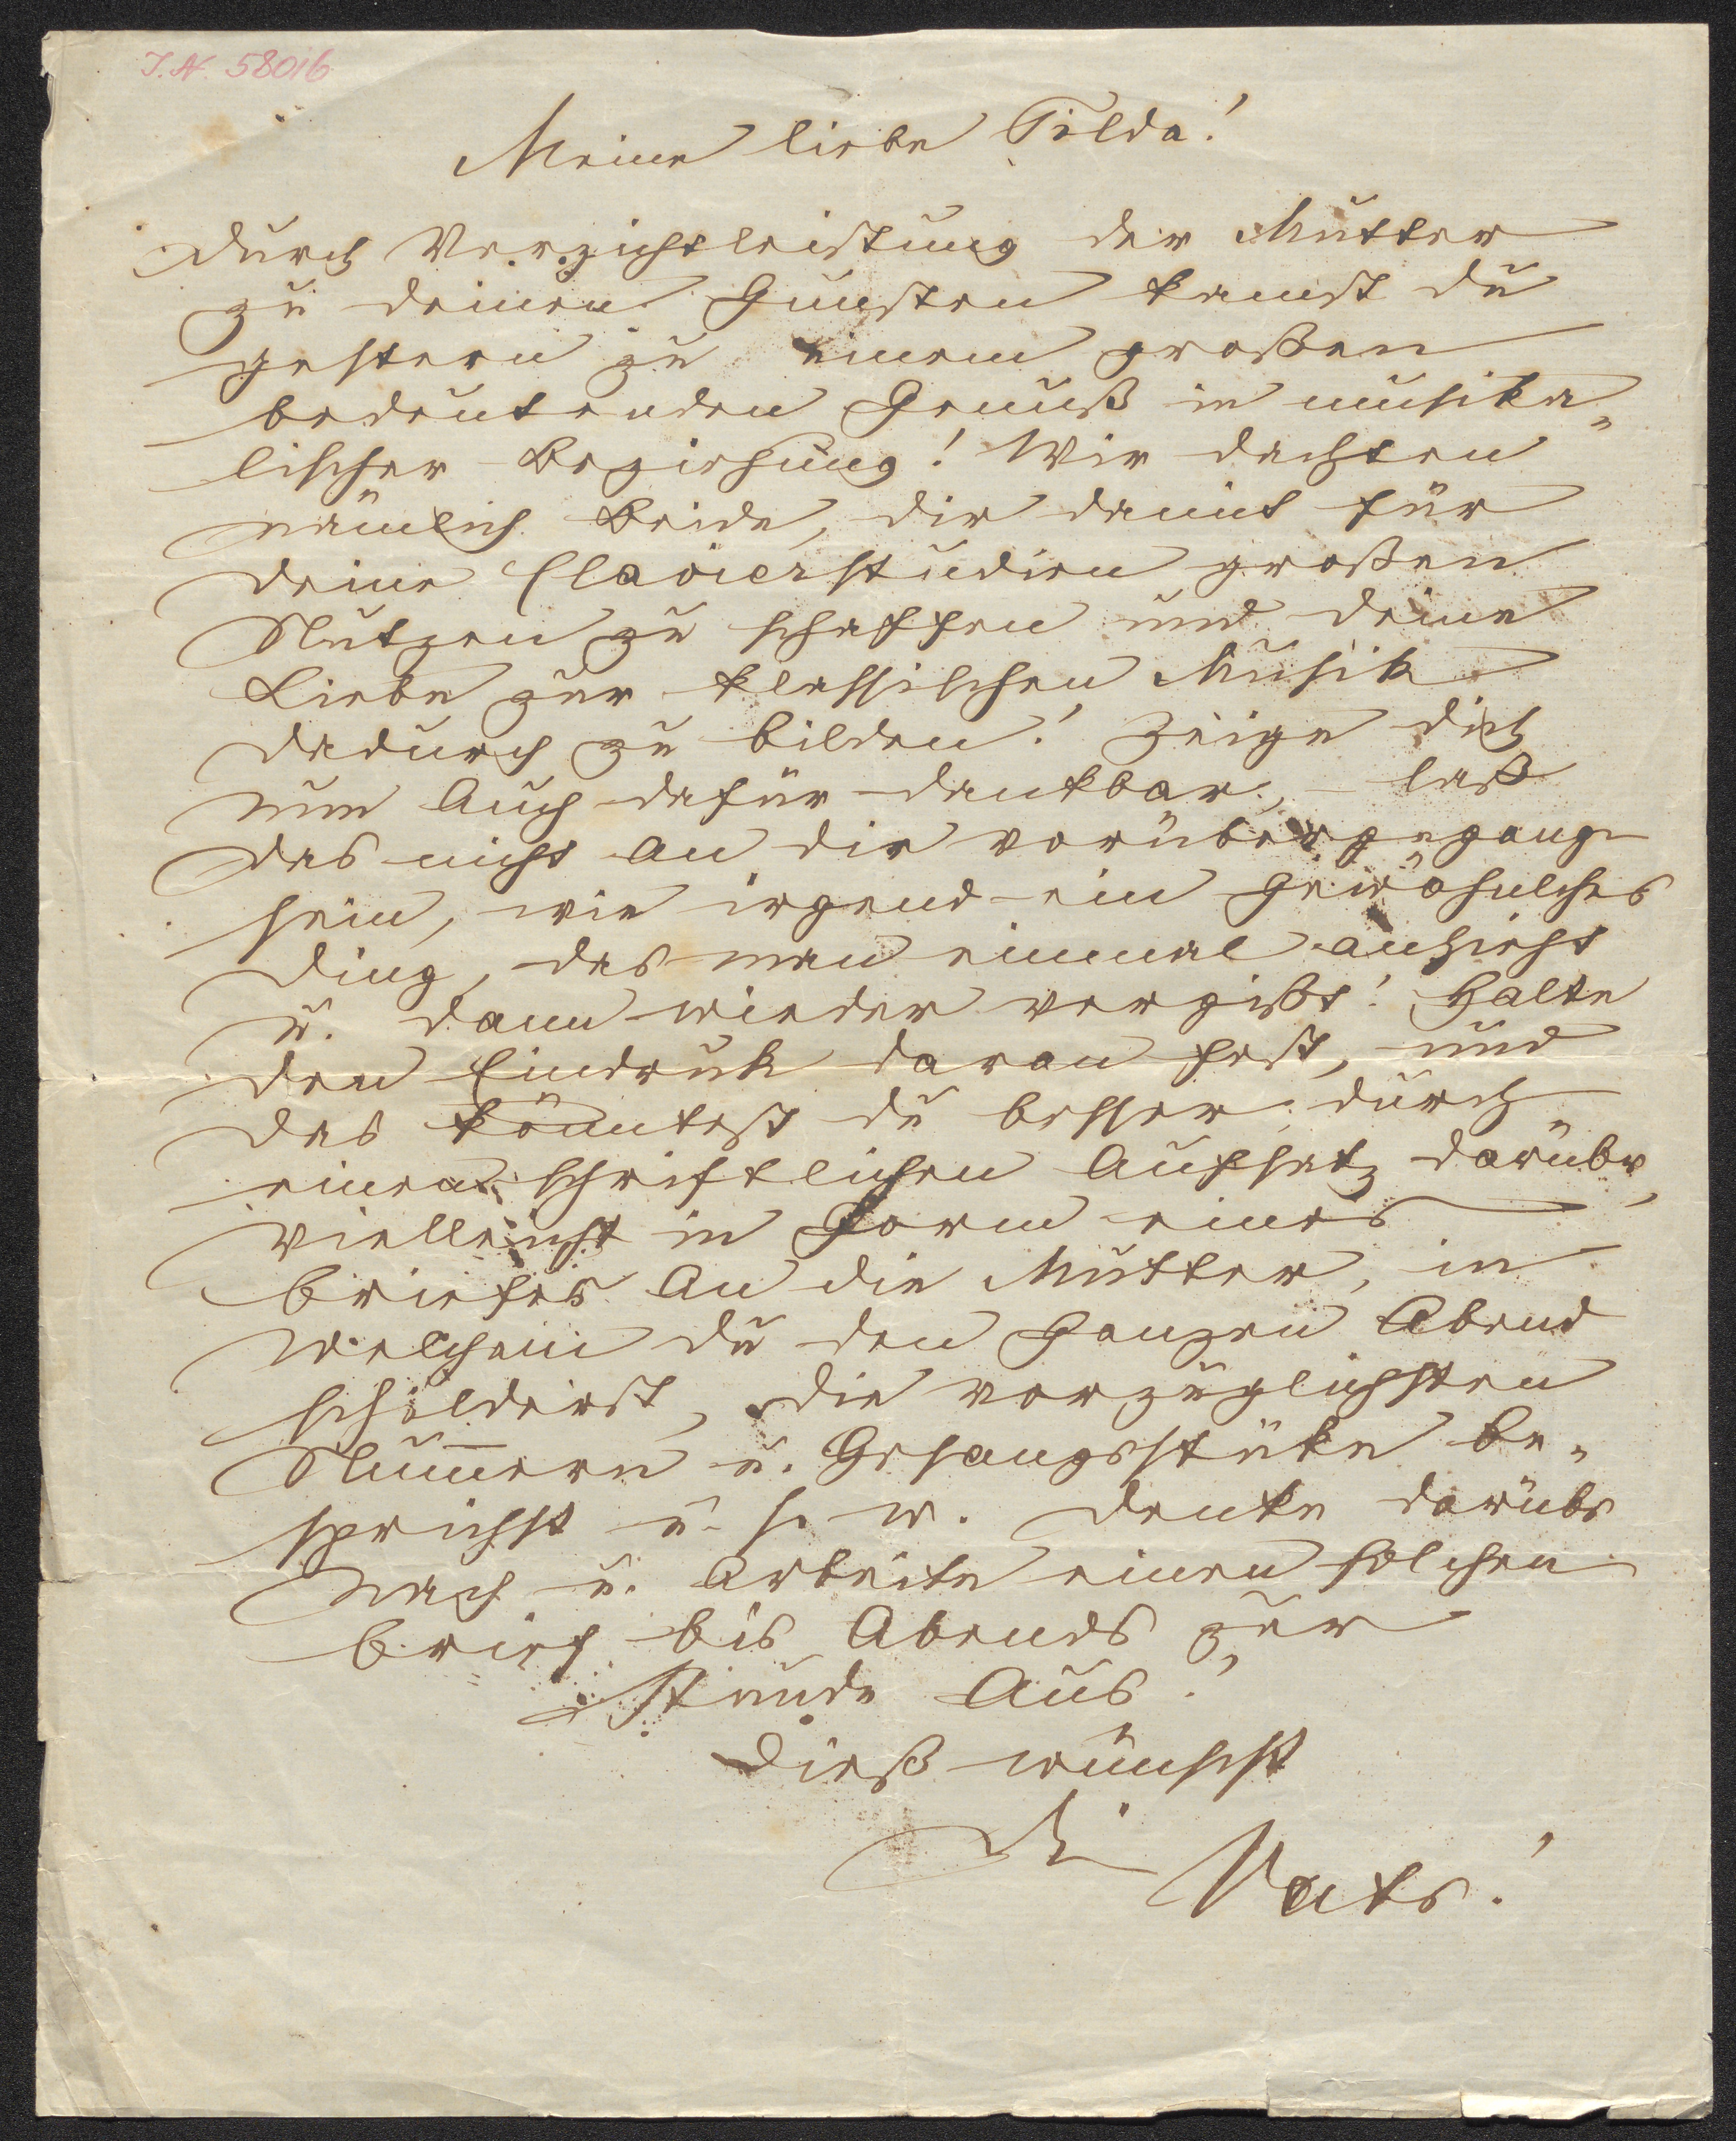 I.N. 58016
Meine liebe Tilda!
Durch Verzichtleistung der Mutter
zu deinen Gunsten kamst du
gestern zu einem großen
bedeutenden Genuß in musika„
lischer Beziehung! Wir dachten
nämlich Beide, dir damit für
deine Clavierstudien großen
Nutzen zu schaffen und deine
Liebe zur klassischen Musik
dadurch zu bilden! Zeige dich
nun auch dafür dankbar, – laß
das nicht an dir vorübergegangen
sein, wie irgend ein gewöhnliches
Ding, das man einmal ansieht
u. dann wieder vergißt! Halte
den Eindruk davon fest, und
das könntest du besser durch
einen schriftlichen Aufsatz darüber,
vielleicht in Form eines
Briefes an die Mutter, in
welchem du den ganzen Abend
schilderst, die vorzüglichsten
Num̅ern u. Gesangsstüke be„
sprichst u. s. w. Denke darüber
nach u. arbeite einen solchen
Brief bis Abends zur
Stunde aus!
Dieß wünscht
Dein Vater!